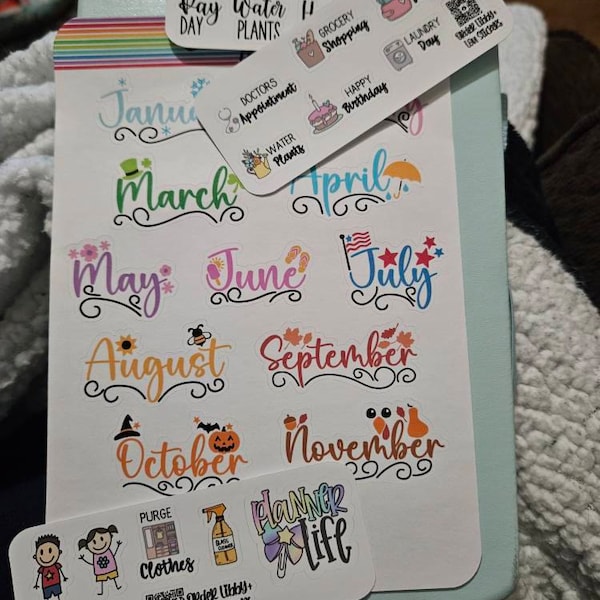 Pay Water
DAY PLANTS
GROCERY
Shopping
LAUNDRY
Day
ORDER LIBBY+
LOW STICKERS
DOCTORS
Appointment
HAPPY
Birthday
WATER
Plants
Janua
y
March
April
May
June
July
August
September
October
November
PURGE
Clothes
GLASS
CLEANER
PLANNER
Life
ORDER LIBBY+